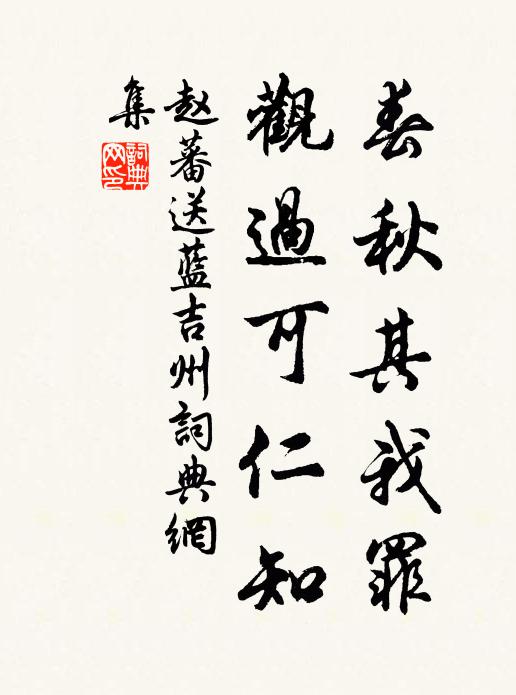 春秋其我罪
觀過可仁知
赵蕃送藍吉州詞典網
集
詞典网印